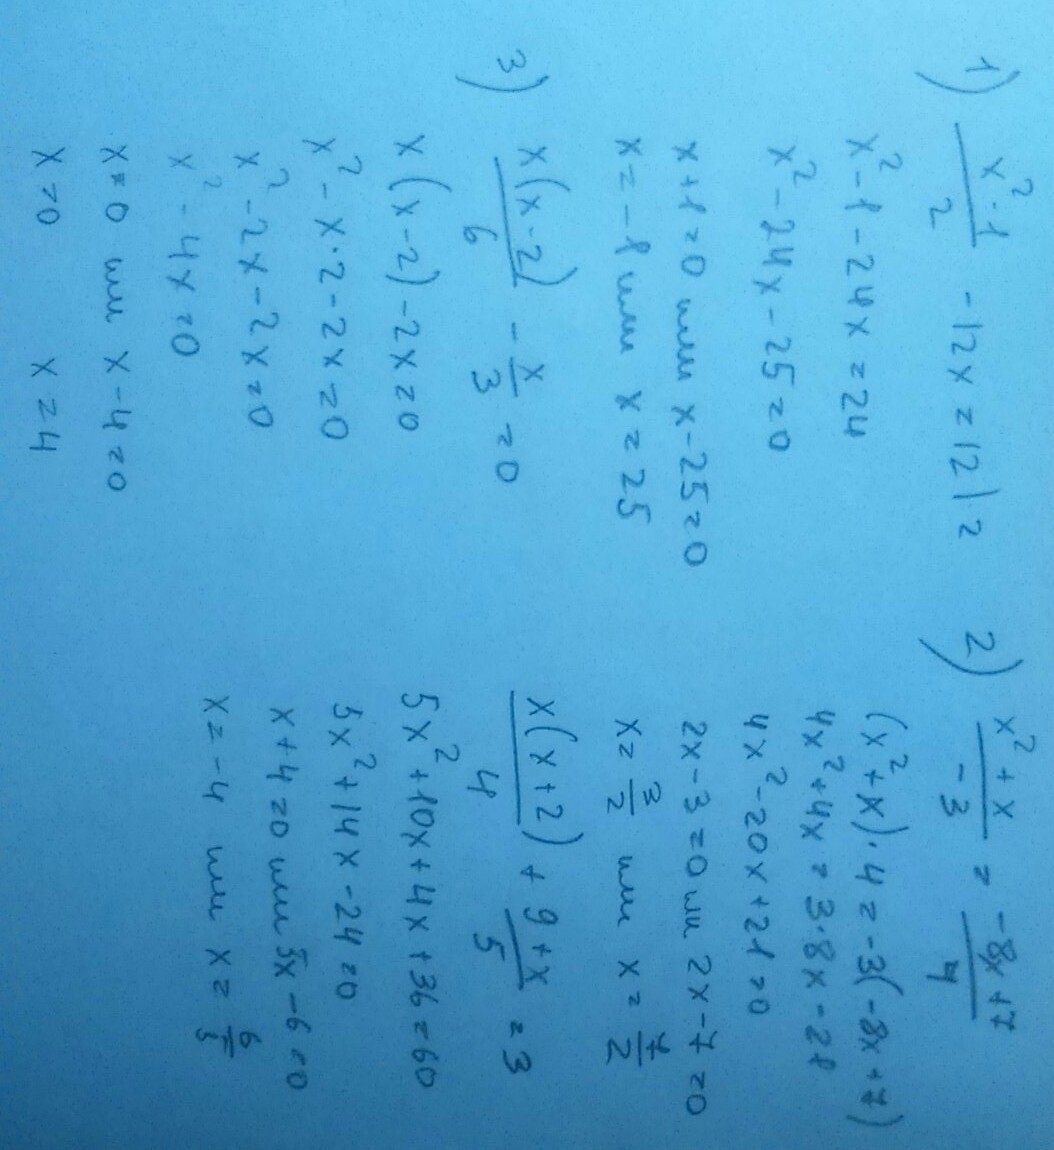 1) (x²-1)/2 - 12x = 12 | 2
x²-1-24x = 24
x²-24x-25=0
x+1=0 или x-25=0
x=-1 или x=25
3) x(x-2)/6 - x/3 = 0
x(x-2)-2x=0
x²-x·2-2x=0
x²-2x-2x=0
x²-4x=0
x=0 или x-4=0
x=0 x=4
2) (x²+x)/-3 = (-8x+7)/4
(x²+x)·4=-3(-8x+7)
4x²+4x=3·8x-21
4x²-20x+21=0
2x-3=0 или 2x-7=0
x=3/2 или x=7/2
x(x+2)/4 + (9+x)/5 = 3
5x²+10x+4x+36=60
5x²+14x-24=0
x+4=0 или 5x-6=0
x=-4 или x=6/5